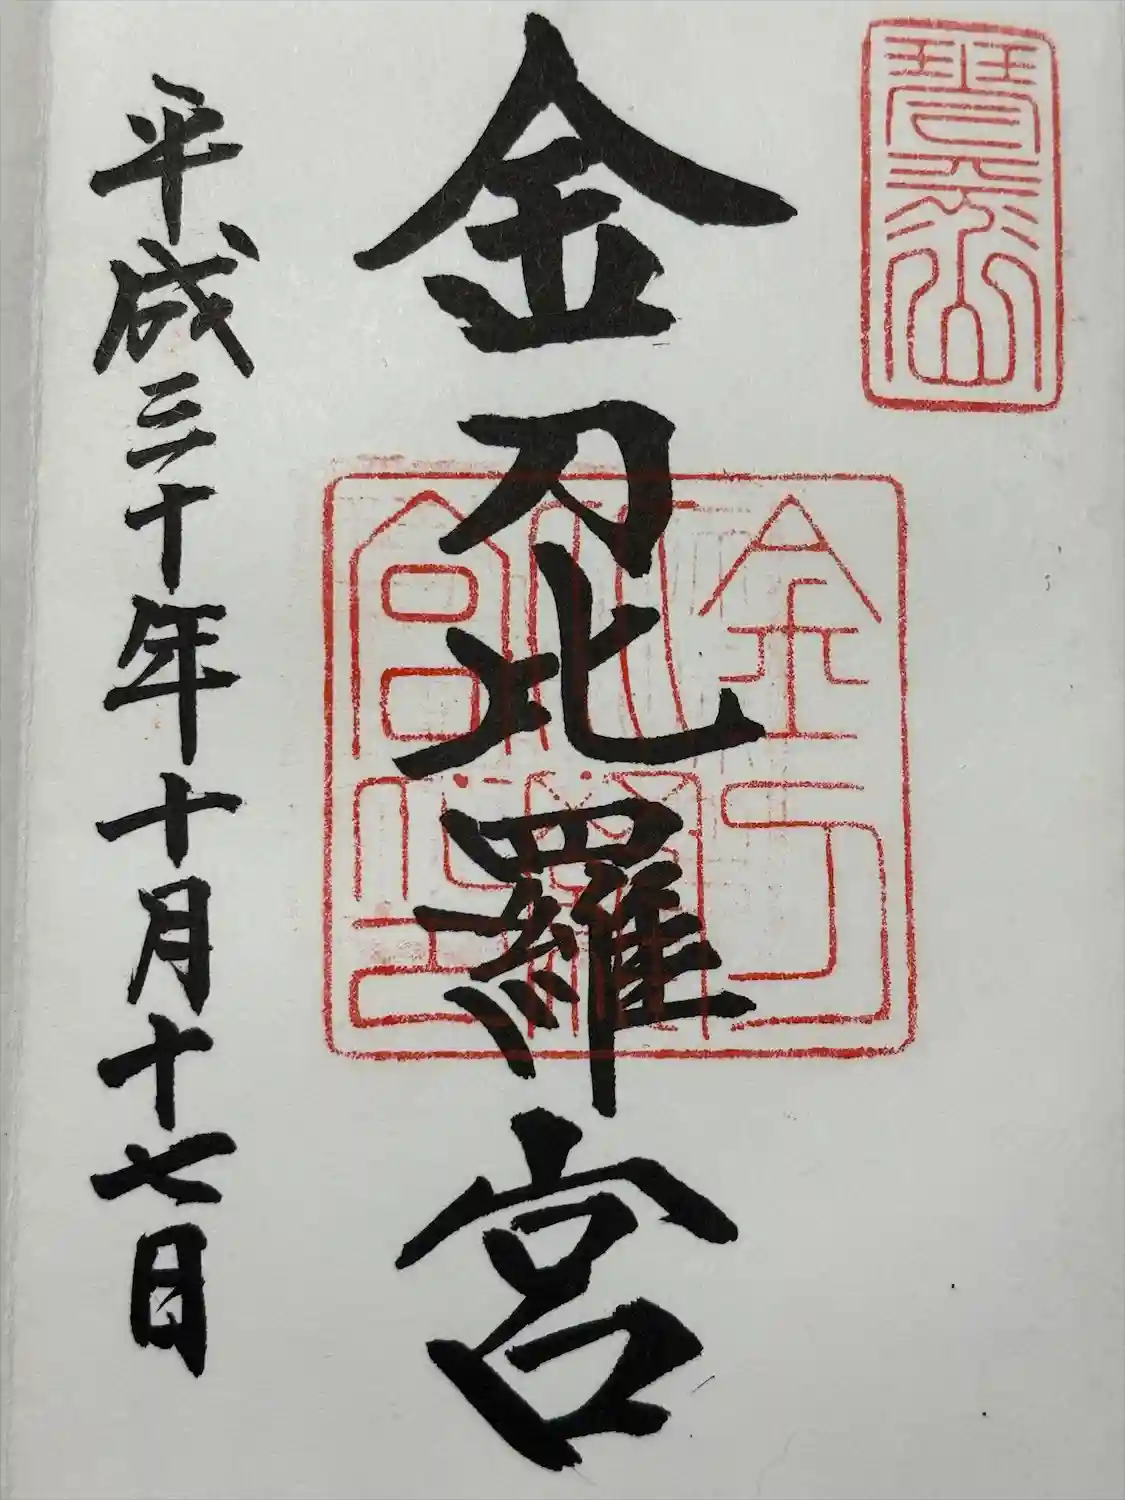 琴平山
金刀比羅宮
金刀比羅宮印
平成三十年十月十七日